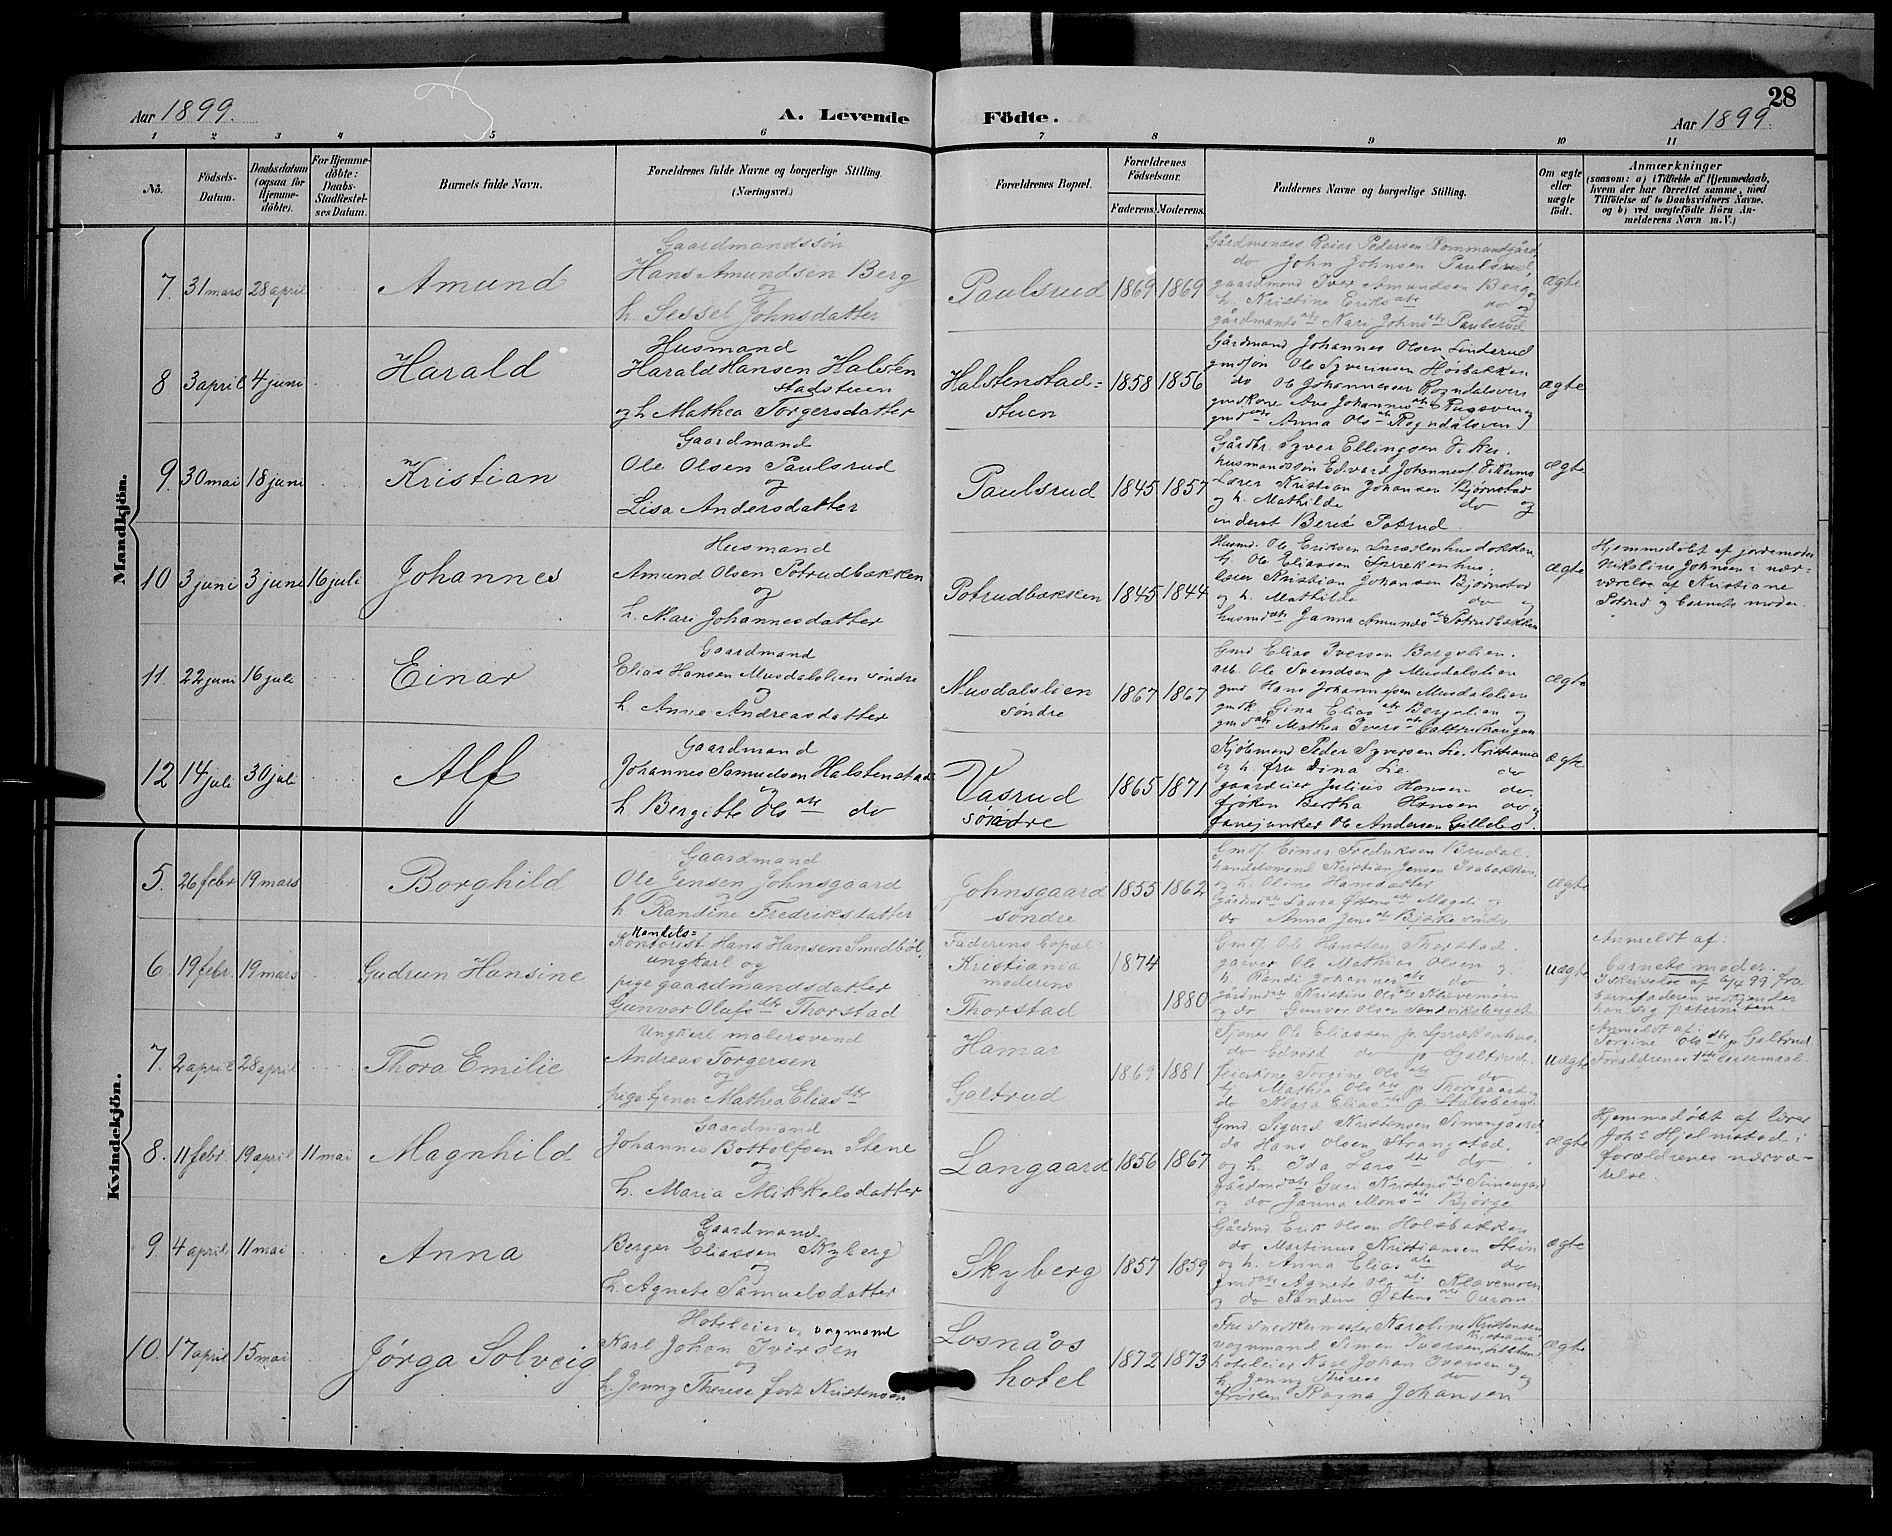 28
Aar 1899.
A. Levende Födte.
Aar 1899.
1 2 3 4 5 6 7 8 9 10 11
No.
Födsels-Datum.
Daabsdatum (ogsaa for Hjemmedöbte).
For Hjemmedöbte: Daabs-Stadfæstelses Datum.
Barnets fulde Navn.
Forældrenes fulde Navne og borgerlige Stilling.
(Næringsvei.)
Forældrenes Bopæl.
Forældrenes Födselsaar.
Faderens. Moderens.
Faddernes Navne og borgerlige Stilling.
Om ægte eller uægte födt.
Anmærkninger
(saasom: a) i Tilfælde af Hjemmedaab,
hvem der har forrettet samme, med
Tilföielse af to Daabsvidners Navne,
og b) ved uægtefödte Börn An-
melderens Navn m. V.)
Mandkjön.
7. 31 mars 28 april
Amund
Gaardmandssön
Hans Amundsen Berg
og
h. Sessel Johnsdatter
Paulsrud
1869 1869
Gårdmandss. Peier Pedersen Rommundgård
do John Johnsen Paulsrud,
gaardmand Iver Amundsen Berg og
h. Kristine Eriksdtr do og
gårdmandsdtr Kari Johnsdtr Paulsrud
ægte
8 3 april 4 juni
Harald
Husmand
Harald Hansen Halsten
stadstuen
og h. Mathea Torgersdatter
Halstenstad=
stuen
1858 1856
Gårdmand Johannes Olsen Linderud
gmdsøn Ole Syvertsen Høisbakken
do Ole Johannessen Rogndalsven
Anna Olsdtr Rogndalsven
ægte
9. 30 mai 18 juni
Kristian
Gaardmand
Ole Olsen Paulsrud
og
Lisa Andersdatter
Paulsrud
1845 1857
Gårdbr. Syver Ellingsen
husmandssøn Edvard
Lærer Kristian Johansen Bjørnstad
og h. Mathilde do og
inderst Berit Potrud.
ægte
10 3 juni 3 juni 16 juli
Johannes
Husmand
Amund Olsen Potrudbakken
og
h. Mari Johannesdatter
Potrudbakken
1845 1844
Husmd. Ole Eriksen
tj. Ole Eliassen Sprækenhus,
lærer Kristian Johansen Bjørnstad
og h. Mathilde do og
husmdsdtr Janna Amundsdtr Potrudbakken
ægte
Hjemmedøbt af jordemoder
Nikoline Johnsen i nær-
værelse af Kristiane
Potrud og barnets moder.
11. 22 juni 16 juli
Einar
Gaardmand
Elias Hansen Musdalslien søndre
og
h. Anne Andreasdatter
Musdalslien
søndre
1867 1867
Gmd Elias Iversen Bergslien.
arb. Ole Svendsen p. Musdalslien
gmd Hans Johannssen Musdalslien
gmdk. Gina Eliasdtr Bergslien og
gmdsdtr Mathea Iversdtr
ægte
12 14 juli 30 juli
Alf
Gaardmand
Johannes Samuelsen Halstenstad
og
h. Bergitte Olsdtr do
Vasrud
søndre
1865 1871
Kjøbmand Peder Syversen Lie. Kristiania
og h. fru Dina Lie. do
gaardeier Julius Hansen do.
frøken Bertha Hansen do og
fanejunker Ole Andersen Gillebo.
ægte
Kvindekjön.
5. 26 febr 19 mars
Borghild
Gaardmand
Ole Jensen Johnsgaard
og
h. Randine Fredriksdatter
Johnsgaard
søndre
1855 1862
Gmdss. Einar Fredriksen Brudal.
handelsmand Kristian Jensen
og h. Oline Hansdatter
Anna Jensdtr Bjerke søndre
ægte
6. 19 febr. 19 mars
Gudrun Hansine
Handels=
Kontorist Hans Hansen Smedbøl,
ungkarl og
pige gaardmandsdatter
Gunvor Olafsdtr Thorstad
Faderens bopæl:
Kristiania
moderens
Thorstad
1874
1880
Gmdss. Ole Hansen Thorstad.
garver Ole Mathias Olsen og
h. Randi Johannesdtr do,
gårdmdsdtr Kristine Olsdtr Klævemoen
og do Gunvor Olsen Sandviksberget
uægte
Anmeldt af:
barnets moder.
I skrivelse af 6/4 99 fra
barnefaderen vedkjender
han sig paterniteten.
7. 2 april 28 april
Thora Emilie
Ungkarl malersvend
Andreas Torgersen
og
pige tjener Mathea Eliasdtr
Hamar
Galtrud
1869 1881
Tjener Ole Eliassen p. Sprækenhus.
do Edvard do p. Galtrud.
Torgine Olsdtr do
tj. Mathea Olsdtr p. Thorsgaarden
do Klara Eliasdtr p. Stalsberg.
uægte
Anmeldt af:
Torgine Olsdtr p. Galtrud
Forældrenes 1ste leiermaal.
8. 11 febr. 19 april 11 mai
Magnhild
Gaardmand
Johannes Bottolfsen Stene
og
h. Maria Mikkelsdatter
Langaard
1856 1867
Gmd. Sigurd Kristensen Simengaard,
do Hans Olsen Strangstad,
og h. Ida Larsdtr do
gårdmdsdtr Guri Kristensdtr Simengard
og do Janna Monsdtr Bjørge
ægte
Hjemmedøbt af lærer
Johs Hjelmstad i
forældrenes nærvæ-
relse.
9. 4 april 11 mai
Anna
Gaardmand
Berger Eliassen Skyberg
og
h. Agnete Samuelsdatter
Skyberg
1857 1859
Gårdmd Erik Olsen Holsbakken
do Martinus Kristiansen Stein
og h. Anna Eliasdtr do
gmdsdtr Agnete Olsdtr Klævemoen
og do Randine Østensdtr
ægte
10. 17 april 15 mai
Jørga Solveig
Hoteleier og vognmand
Karl Johan Ivirsen
og
h. Jenny Therese født Kristensen
Losnaos
hotel
1872 1873
Fru snedkermester Karoline Kristensen
Kristiania
vognmand Simen Iversen, Lilleham.
hoteleier Karl Johan Iversen og
h. Jenny Therese do og
frøken Ragna Johansen
ægte